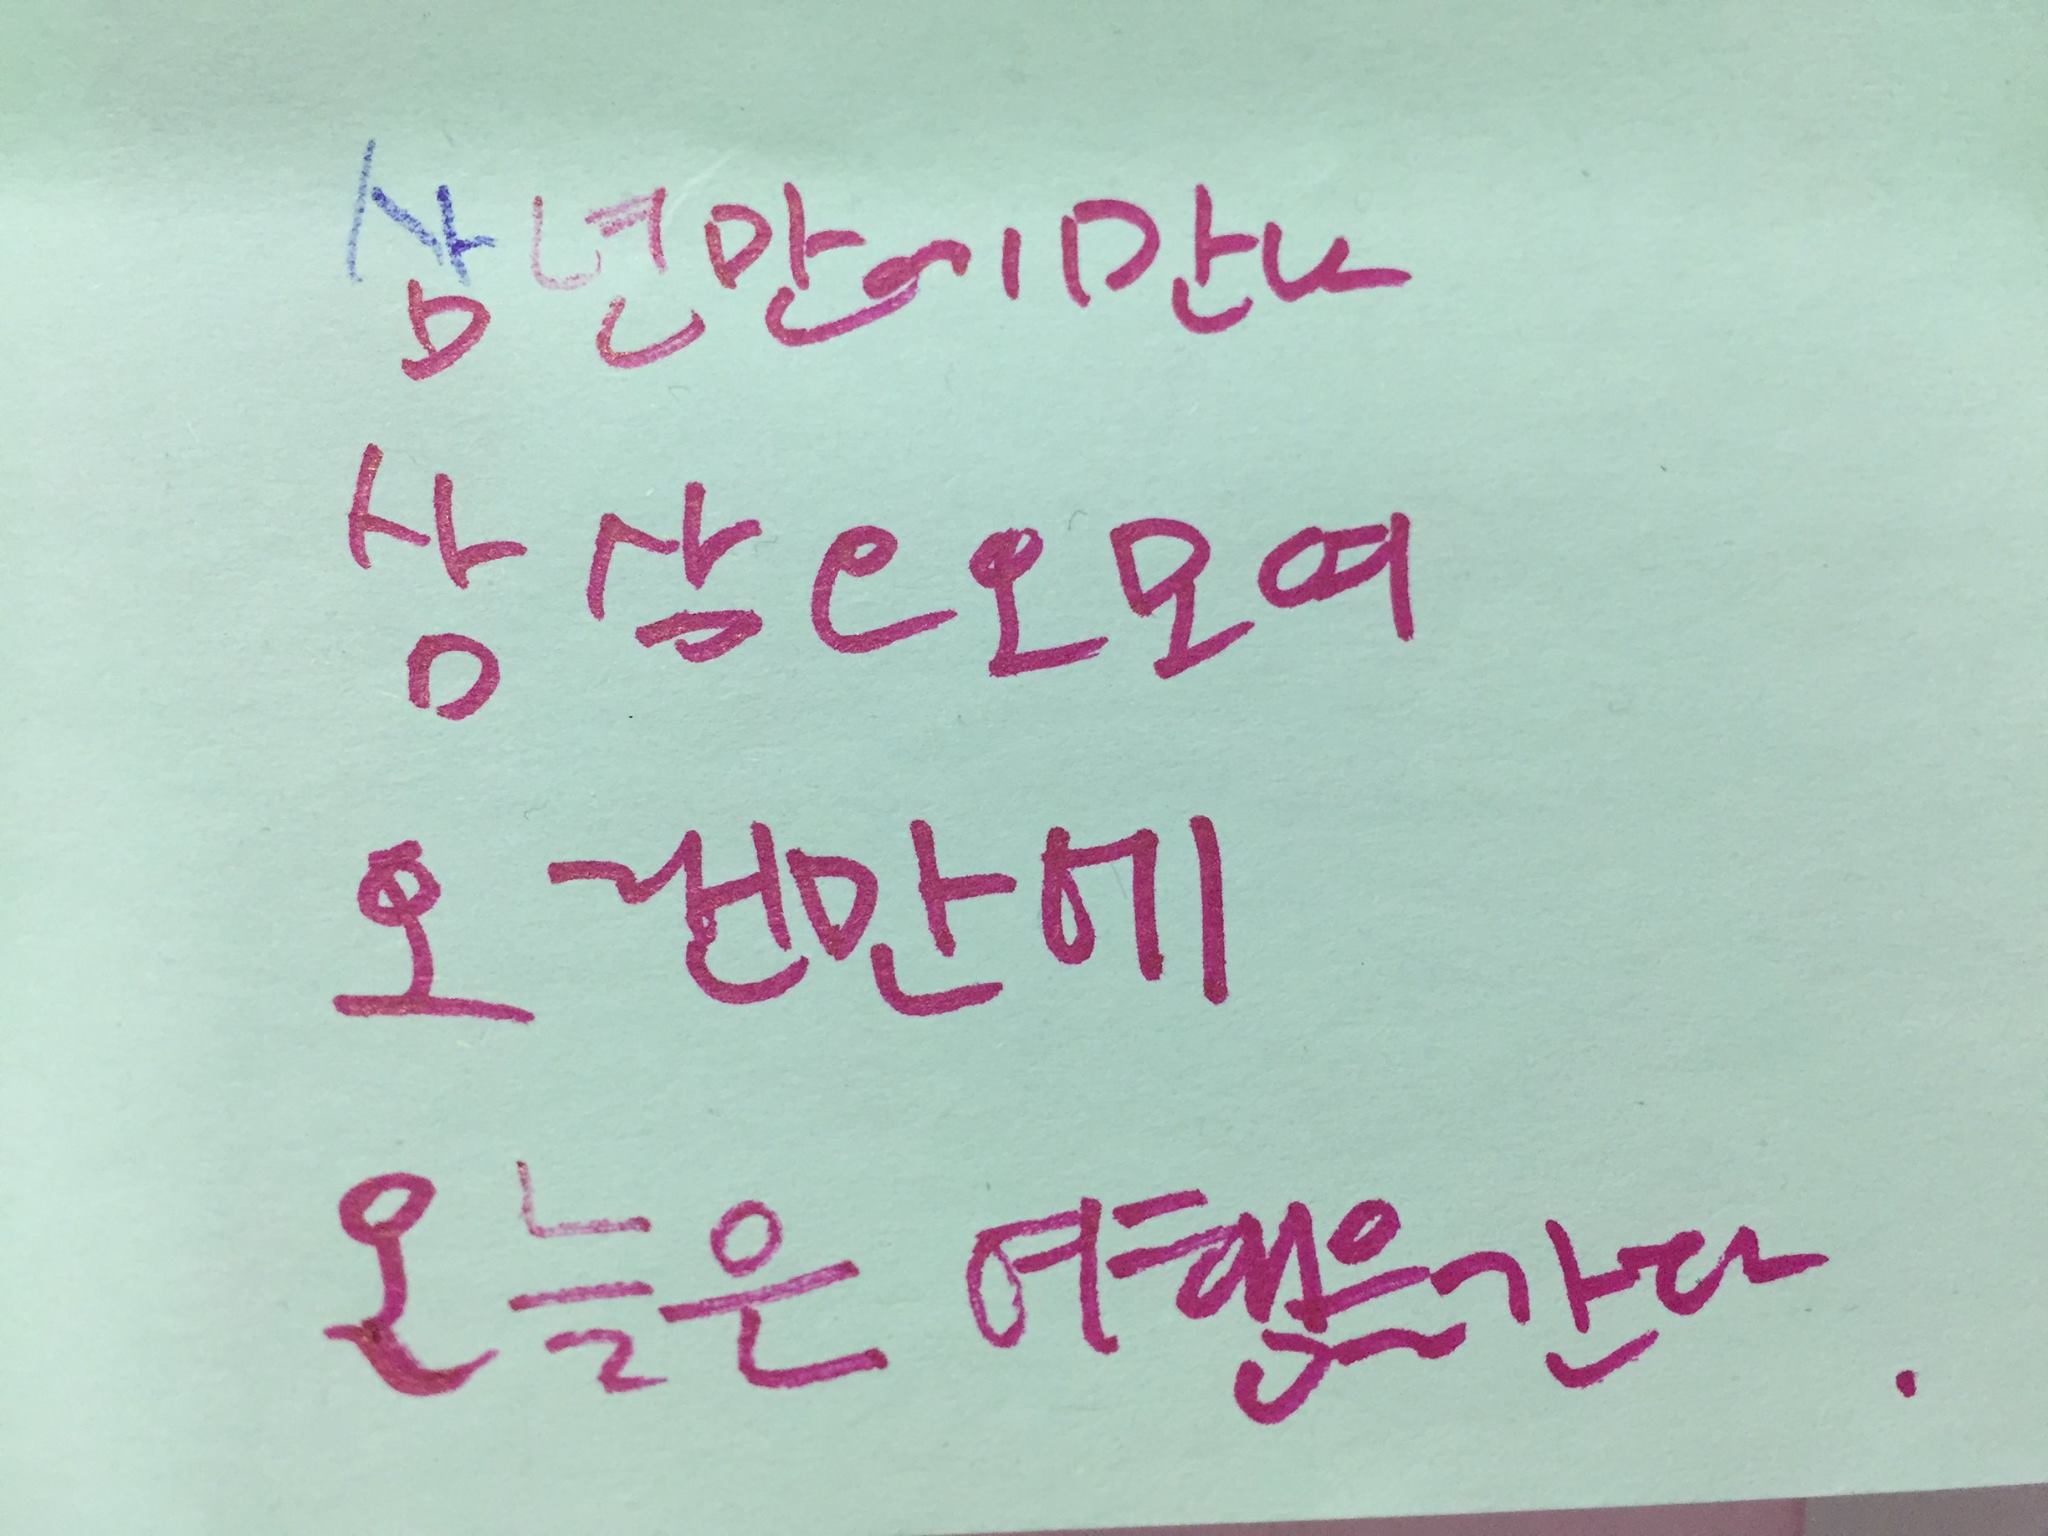 삼년만에 만나
삼삼오오 모여
오랜만에
오늘은 여행을 간다.